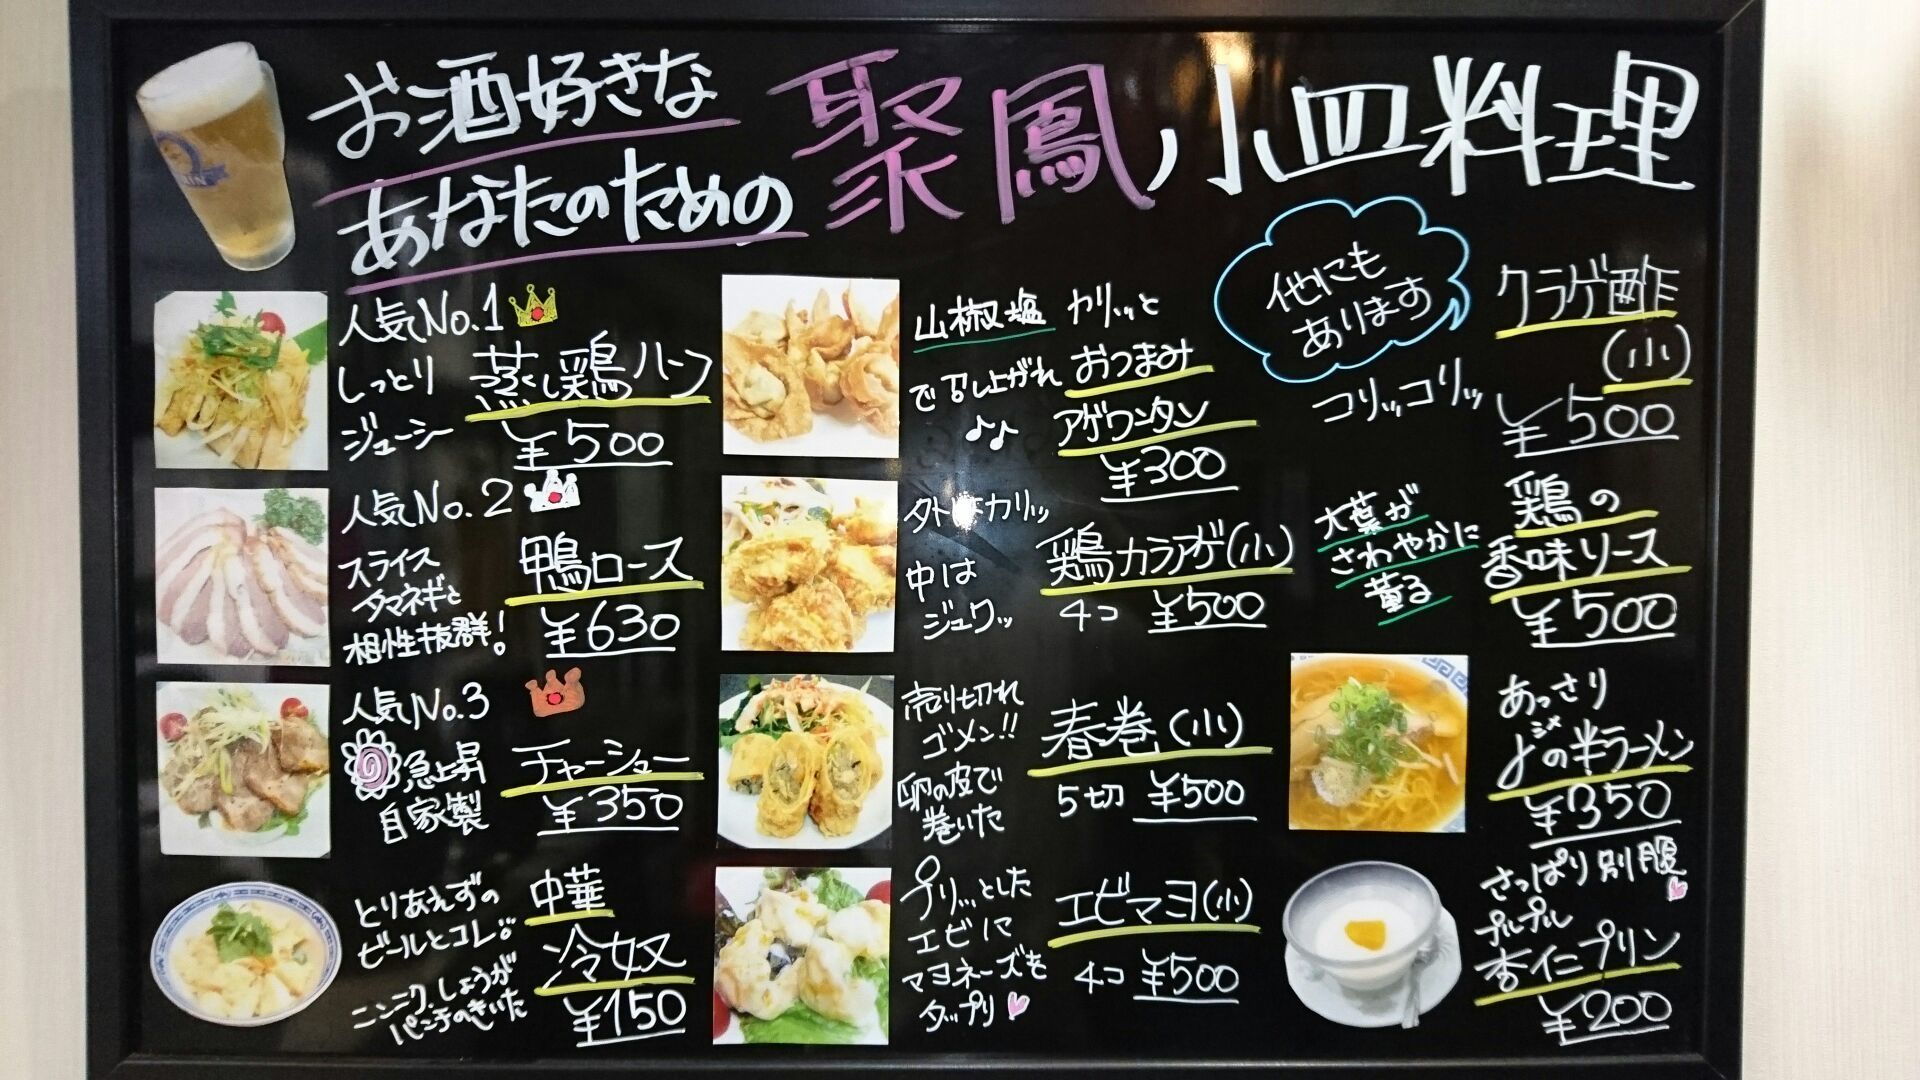 お酒好きな
あなたのための
聚鳳小皿料理
人気No.1
しっとり
ジューシー
蒸し鶏ハーフ
¥500
人気No.2
スライス
タマネギと
相性抜群!
鴨ロース
¥630
人気No.3
急上昇
自家製
チャーシュー
¥350
とりあえずの
ビールとコレ
ニンニク.しょうが
パンチのきいた
中華
冷奴
¥150
山椒塩 カリッと
で召し上がれ
おつまみ
アゲワンタン
¥300
外はカリッ
中は
ジュワッ
鶏カラアゲ(小)
4コ ¥500
売り切れ
ゴメン!!
卵の皮で
巻いた
春巻(小)
5切 ¥500
プリッとした
エビに
マヨネーズを
タップリ
エビマヨ(小)
4コ ¥500
他にも
あります
コリッコリッ
クラゲ酢
(小)
¥500
大葉が
さわやかに
薫る
鶏の
香味ソース
¥500
あっさり
〆の半ラーメン
シメ
¥350
さっぱり別腹
プルプル
杏仁プリン
¥200